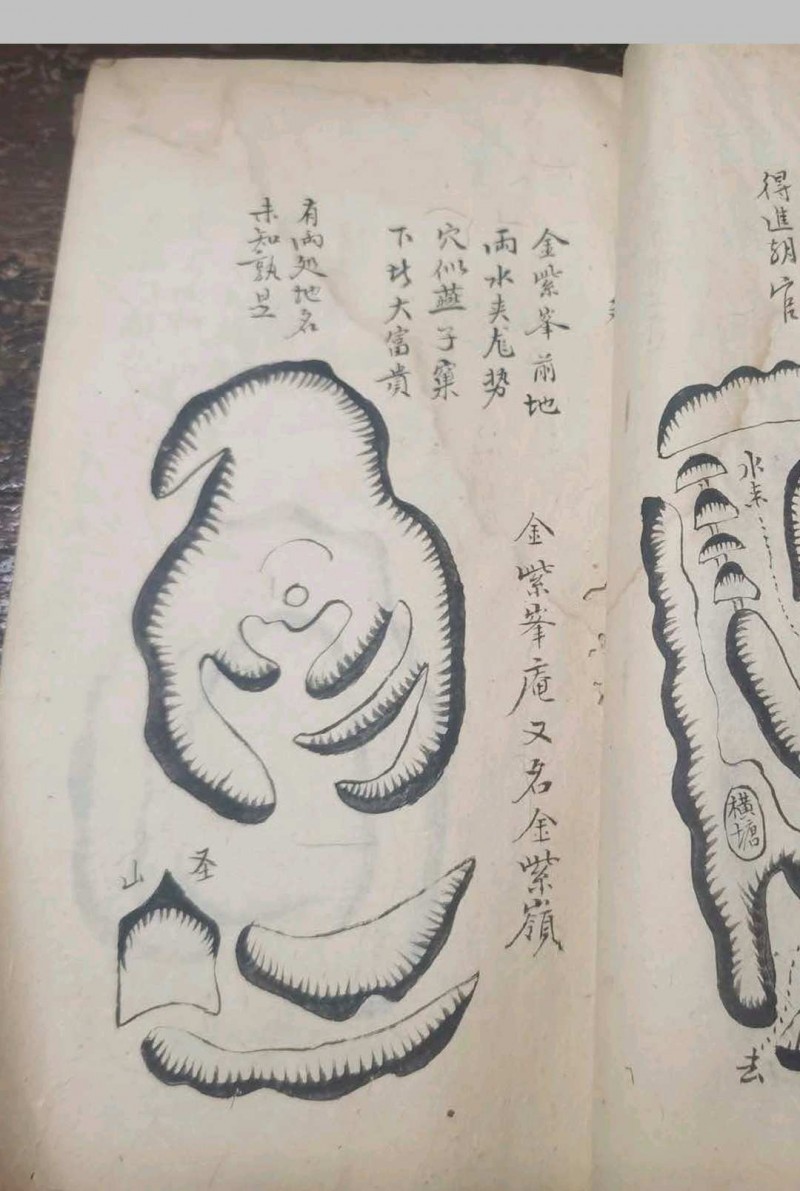 得進朝官
水來
橫塘
去
金紫峯前地
兩水夹龙势
穴似燕子窠
下此大富貴
金紫峯庵又名金紫嶺
有兩処地名
未知孰是
圣山